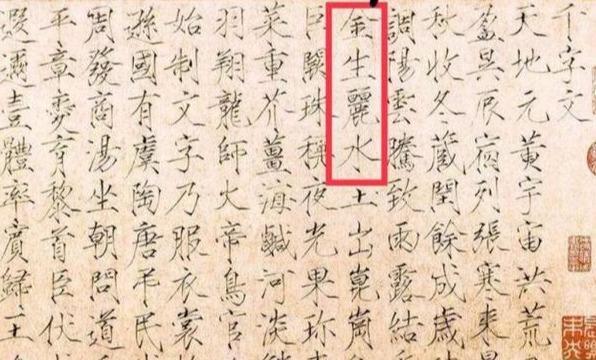 千字文
天地元黃宇宙洪荒
盈昃辰宿列張寒来
秋收冬蔵閏餘成歲
調陽雲騰致雨露結
金生麗水玉出崑崗
巨闕珠稱夜光果珎
菜重芥薑海鹹河淡
羽翔龍師火帝鳥官
始制文字乃服衣裳
遜國有虞陶唐弔民
周發商湯坐朝問道
平章愛育黎首臣伏
遐邇壹體率賓歸王